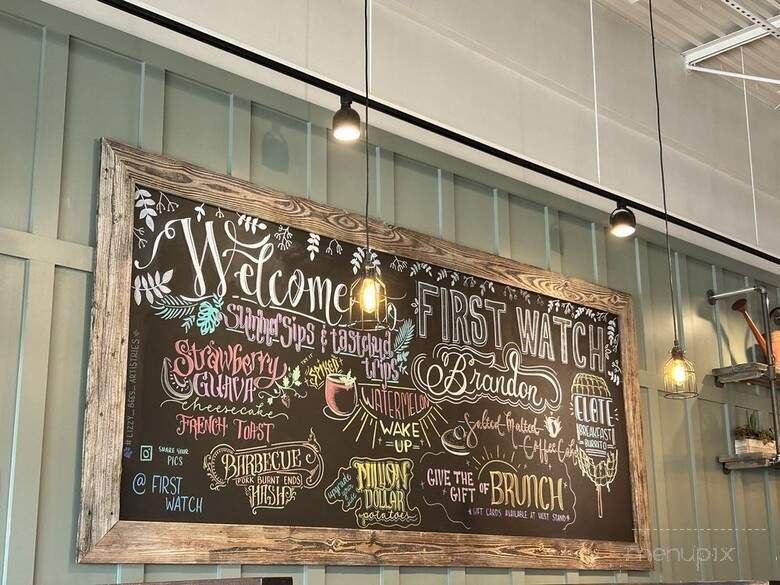 Welcome to
FIRST WATCH
Brandon
Summer Sips & tastebud
trips
Strawberry
GUAVA
cheesecake
FRENCH TOAST
WATERMELON
WAKE
UP
Salted Malted
Coffee Cake
ELOTE
BREAKFAST
BURRITO
BARBECUE
PORK BURNT ENDS
HASH
upgrade
MILLION
DOLLAR
potatoes
GIVE THE
GIFT OF BRUNCH
GIFT CARDS AVAILABLE AT HOST STAND
SHARE YOUR
PICS
@ FIRST
WATCH
#LIZZY_BEES_ARTISTRIES
menupix